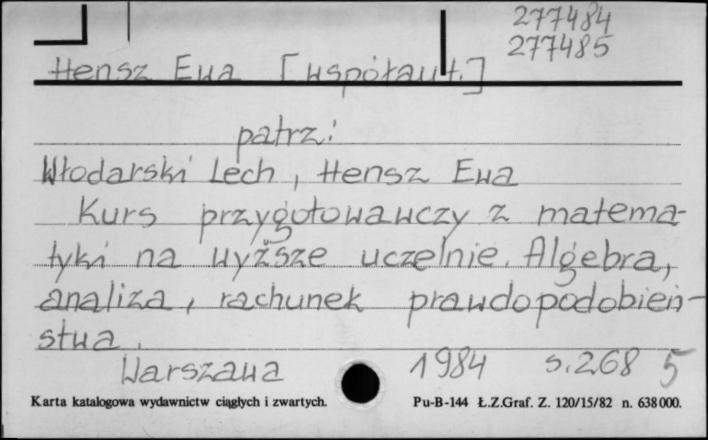 277484
277485
Hensz Ewa [współaut.]
patrz:
Włodarski Lech, Hensz Ewa
Kurs przygotowawczy z matema-
tyki na wyższe uczelnie. Algebra,
analiza, rachunek prawdopodobień-
stwa.
Warszawa 1984 s.268 5
Karta katalogowa wydawnictw ciągłych i zwartych. Pu-B-144 Ł.Z.Graf. Z. 120/15/82 n. 638000.